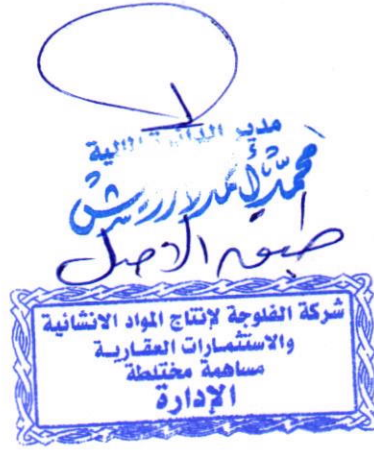 مدير الدائرة المالية
محمد أحمد درويش
طبق الاصل
شركة الفلوجة لإنتاج المواد الانشائية
والاستثمارات العقارية
مساهمة مختلطة
الإدارة